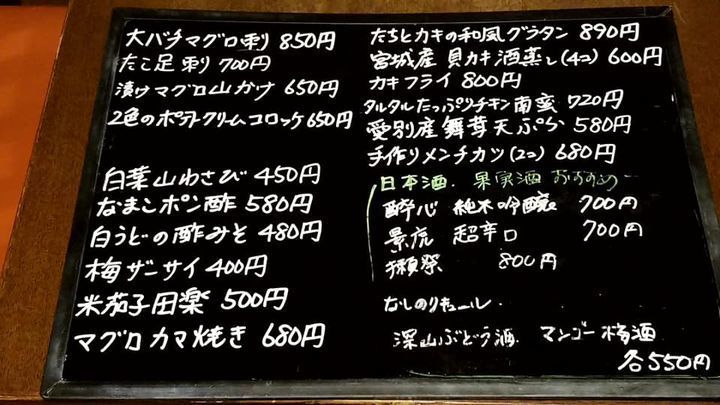 大バチマグロ刺 850円
たこ足刺 700円
漬けマグロ山かけ 650円
2色のポテトクリームコロッケ 650円
白葉山わさび 450円
なまこポン酢 580円
白うどの酢みそ 480円
梅ザーサイ 400円
米茄子田楽 500円
マグロカマ焼き 680円
たちとカキの和風グラタン 890円
宮城産 貝カキ酒蒸し(4コ) 600円
カキフライ 800円
タルタルたっぷりチキン南蛮 720円
愛別産舞茸天ぷら 580円
手作りメンチカツ(2コ) 680円
日本酒. 果実酒 おすすめ
酔心 純米吟醸 700円
景虎 超辛口 700円
獺祭 800円
なしのリキュール
深山ぶどう酒. マンゴー梅酒
各550円